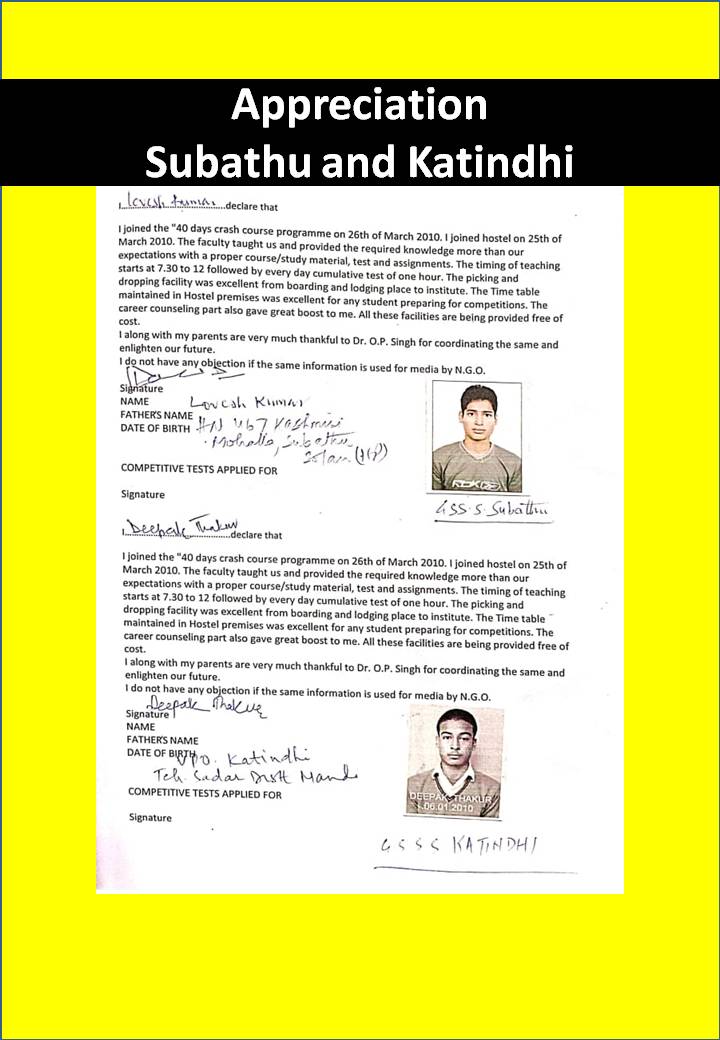 Appreciation
Subathu and Katindhi
I..Lovesh Kumar...declare that
I joined the "40 days crash course programme on 26th of March 2010. I joined hostel on 25th of
March 2010. The faculty taught us and provided the required knowledge more than our
expectations with a proper course/study material, test and assignments. The timing of teaching
starts at 7.30 to 12 followed by every day cumulative test of one hour. The picking and
dropping facility was excellent from boarding and lodging place to institute. The Time table
maintained in Hostel premises was excellent for any student preparing for competitions. The
career counseling part also gave great boost to me. All these facilities are being provided free of
cost.
I along with my parents are very much thankful to Dr. O.P. Singh for coordinating the same and
enlighten our future.
I do not have any objection if the same information is used for media by N.G.O.
Signature
NAME Lovesh Kumar
FATHER'S NAME
DATE OF BIRTH H/N 467 Kashmiri
Mohalla, Subathu
Solan (HP)
COMPETITIVE TESTS APPLIED FOR
Signature
RBK
GSS.S. Subathu
I..Deepak Thakur...declare that
I joined the "40 days crash course programme on 26th of March 2010. I joined hostel on 25th of
March 2010. The faculty taught us and provided the required knowledge more than our
expectations with a proper course/study material, test and assignments. The timing of teaching
starts at 7.30 to 12 followed by every day cumulative test of one hour. The picking and
dropping facility was excellent from boarding and lodging place to institute. The Time table
maintained in Hostel premises was excellent for any student preparing for competitions. The
career counseling part also gave great boost to me. All these facilities are being provided free of
cost.
I along with my parents are very much thankful to Dr. O.P. Singh for coordinating the same and
enlighten our future.
I do not have any objection if the same information is used for media by N.G.O.
Signature Deepak Thakur
NAME
FATHER'S NAME
DATE OF BIRTH VPO. Katindhi
Teh. Sadar Distt Mandi
COMPETITIVE TESTS APPLIED FOR
Signature
DEEPAK THAKUR
06.01.2010
GSSS KATINDHI